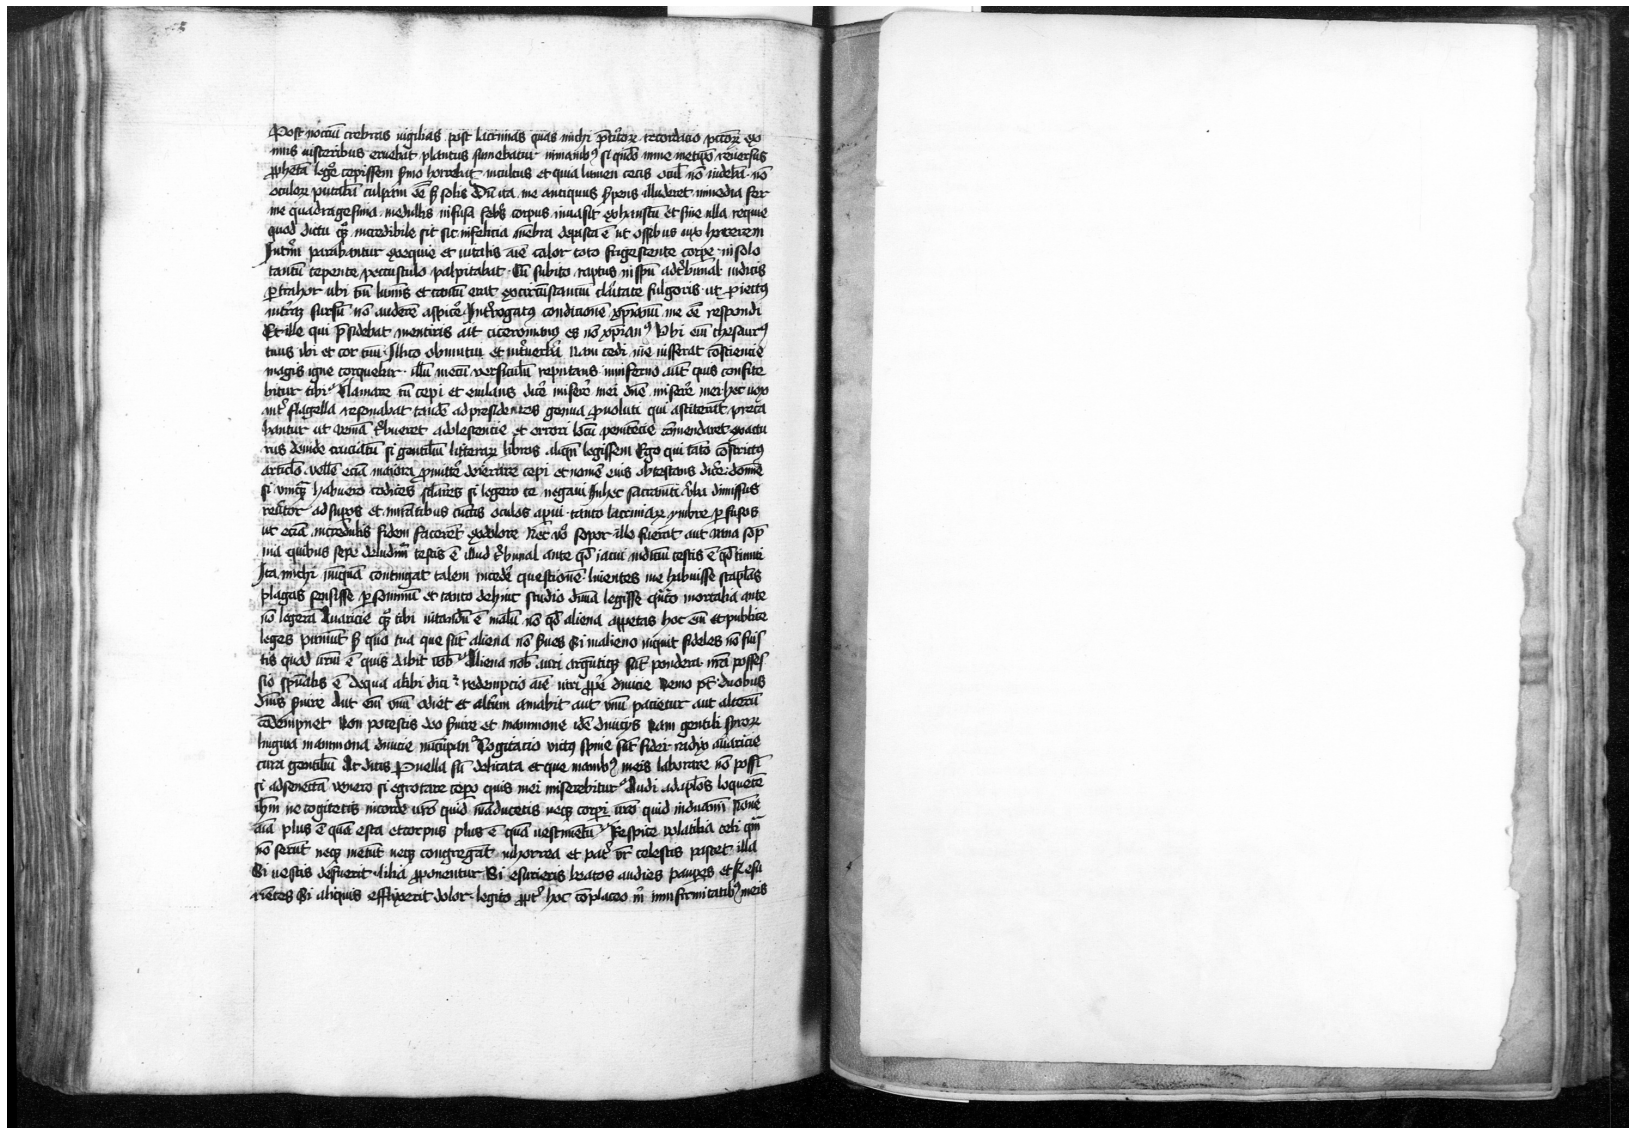 Post noctiũ crebras vigilias post lacrimas quas michi p̃titoꝝ recordacio pctoꝝ ex
imis uisceribus eruebat plantus sumebatur inmanibꝫ si qñdo inme metipm̃ reuersus
ꝓphetã leg̃e cepissem s̃mo horrebat incultus et quia lumen cecis ocul̃ nõ uidebã nõ
oculoꝝ putabã culpam eẽ sꝫ solis Dũ ita me antiquus s̃pens illuderet inmedia fer
me quadragesima medullis infusa feb̃s corpus inuasit exhaustũ et sine ulla requie
quod dictu qꝫ incredibile sit sic infelicia mẽbra depasta ẽ ut ossibus uix hererem
Int̃im parabantur exequie et uitalis aĩe calor toto frigescente corpe in solo
tantũ tepente pectusculo palpitabat Cũ subito raptus in sp̃u ad tribunal iudicis
ꝑtrahor ubi tm̃ lumĩs et tantũ erat ex circũstantiũ claritate fulgoris ut ꝓiectꝰ
in t̃raꝫ sursũ nõ auderẽ aspic̃e Int̃rogatꝰ condicionẽ xp̃ianũ me eẽ respondi
Et ille qui p̃sidebat mentiris ait ciceronianꝰ es nõ xp̃ianꝰ Vbi em̃ thesaurꝰ
tuus ibi et cor tuũ Illico obmutui et int̃ uerb̃a nam cedi me iusserat cõsciencie
magis igne torquebar illũ mecũ versiculũ reputans in inferno aũt quis confite
bitur tibi Clamare tñ cepi et eiulans dic̃e miser̃e mei dñe miser̃e mei hec uox
int̃ flagella resonabat tandẽ ad presidentes genua ꝓuoluti qui astiterãt preca
bantur ut veniã t̃bueret adolescencie et errori locũ penitẽcie cõmendaret exactu
rus deinde cruciatũ si gentiliũ litteraꝝ libros aliqñ legissem Ego qui tãto cõstrictꝰ
articlo vellẽ eciã maiora ꝓmitt̃e deierare cepi et nomẽ eius obtestans dic̃e domĩe
si vnqꝫ habuero codices sclares si legero te negaui In hec sacramti v̾ba dimissus
reũtor ad supos et mirãtibus cunctis oculos apui tanto lacrimaꝝ ymbre ꝑfusos
ut eciã incredulis fidem facerẽt ex dolore Nec v̾o sopor ille fuerat aut vana sõp
nia quibus sepe deludimr̃ testis ẽ illud t̾bunal ante qd̃ iacui iudiciũ testis ẽ qd̃ timui
Ita michi nunquã contingat talem inced̾e questionẽ liuentes me habuisse scaplas
plagas sensisse p̾ somnũ et tanto dehinc studio diuĩa legisse q̃nto mortalia ante
nõ legerã Auaricie qꝫ tibi uitandũ ẽ malũ nõ qd̃ aliena appetas hoc em̃ et publice
leges puniũt sꝫ quo tua que sũt aliena nõ s̾ues Si in alieno inquit fideles nõ fuis
tis quod ur̃m ẽ quis dabit uob̾ Aliena nob̾ auri argẽtiqꝫ sũt pondera nr̃a posses
sio sp̃ualis ẽ de qua alibi dicir̾ redempcio aĩe uiri ꝓp̾e diuicie Nemo pt̾ duobus
dñis s̾uire Aut em̃ vnũ odiet et alterũ amabit aut vnũ patietur aut alterũ
cõdempnet Non potestis deo s̾uire et mammone idẽ diuicijs Nam gentili syroꝝ
lingua mammona diuicie nũcupanr̾ Cogitacio victꝰ spine sũt fidei radix auaricie
cura gentiliũ At dicis Puella sũ delicata et que manibꝫ meis laborare nõ possũ
si ad senectã venero si egrotare cepo quis mei miserebitur Audi ad ap̃los loquentẽ
ihm̃ ne cogitetis in corde ur̃o quid mãducetis neqꝫ corpi ur̃o quid induamĩ Nonne
aĩa plus ẽ quã esca et corpus plus ẽ quã uestimẽtũ Respice volatilia celi qm̃
nõ serũt neqꝫ metũt neqꝫ congregãt in horrea et pat̾ vr̃ celestis pascet illa
Si uestis defuerit lilia ꝓponentur Si esurieris beatos audies paupes et esu
riẽtes Si aliquis efflixerit dolor legito ꝓpt̾ hoc cõplaceo m̃ in infirmitatibꝫ meis